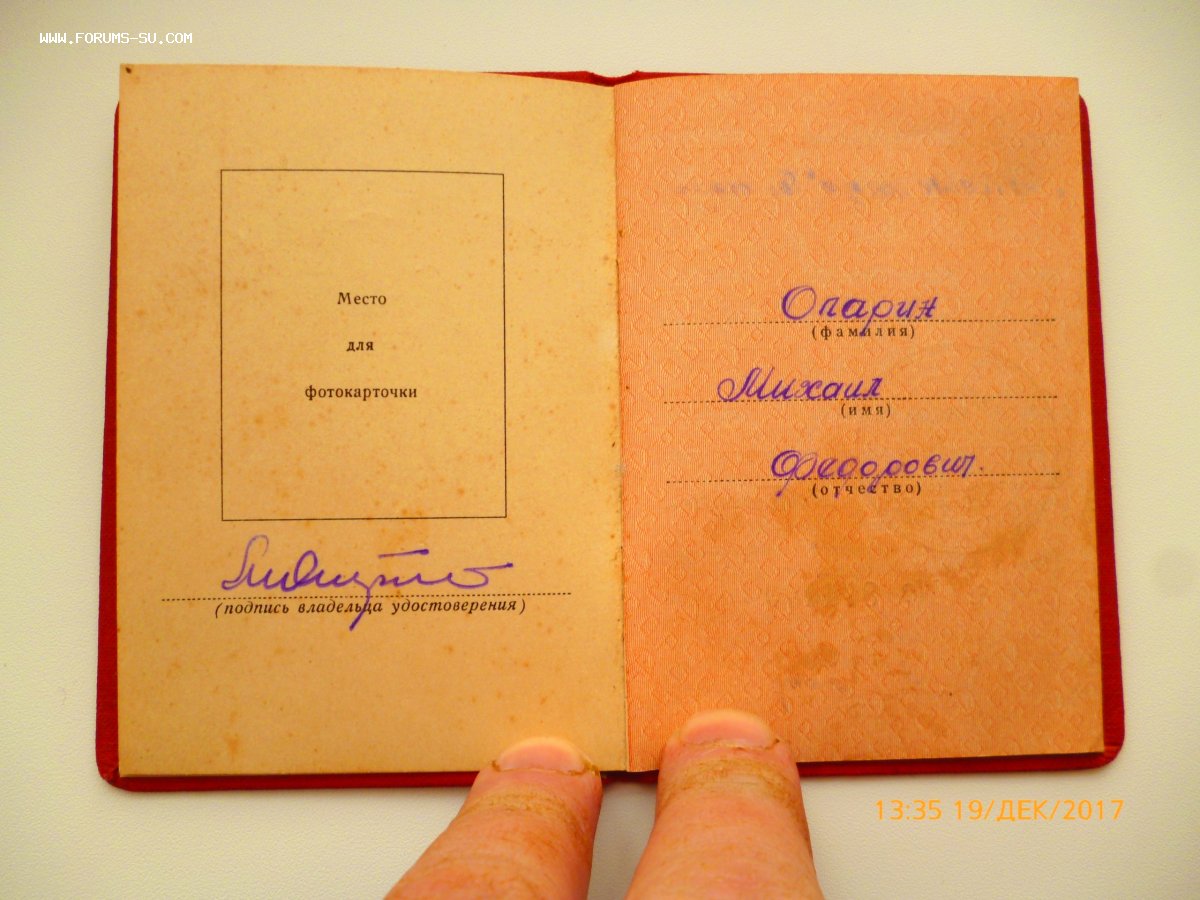 WWW.FORUMS-SU.COM
Место
для
фотокарточки
(подпись владельца удостоверения)
Опарин
(фамилия)
Михаил
(имя)
Федорович.
(отчество)
13:35 19/ДЕК/2017